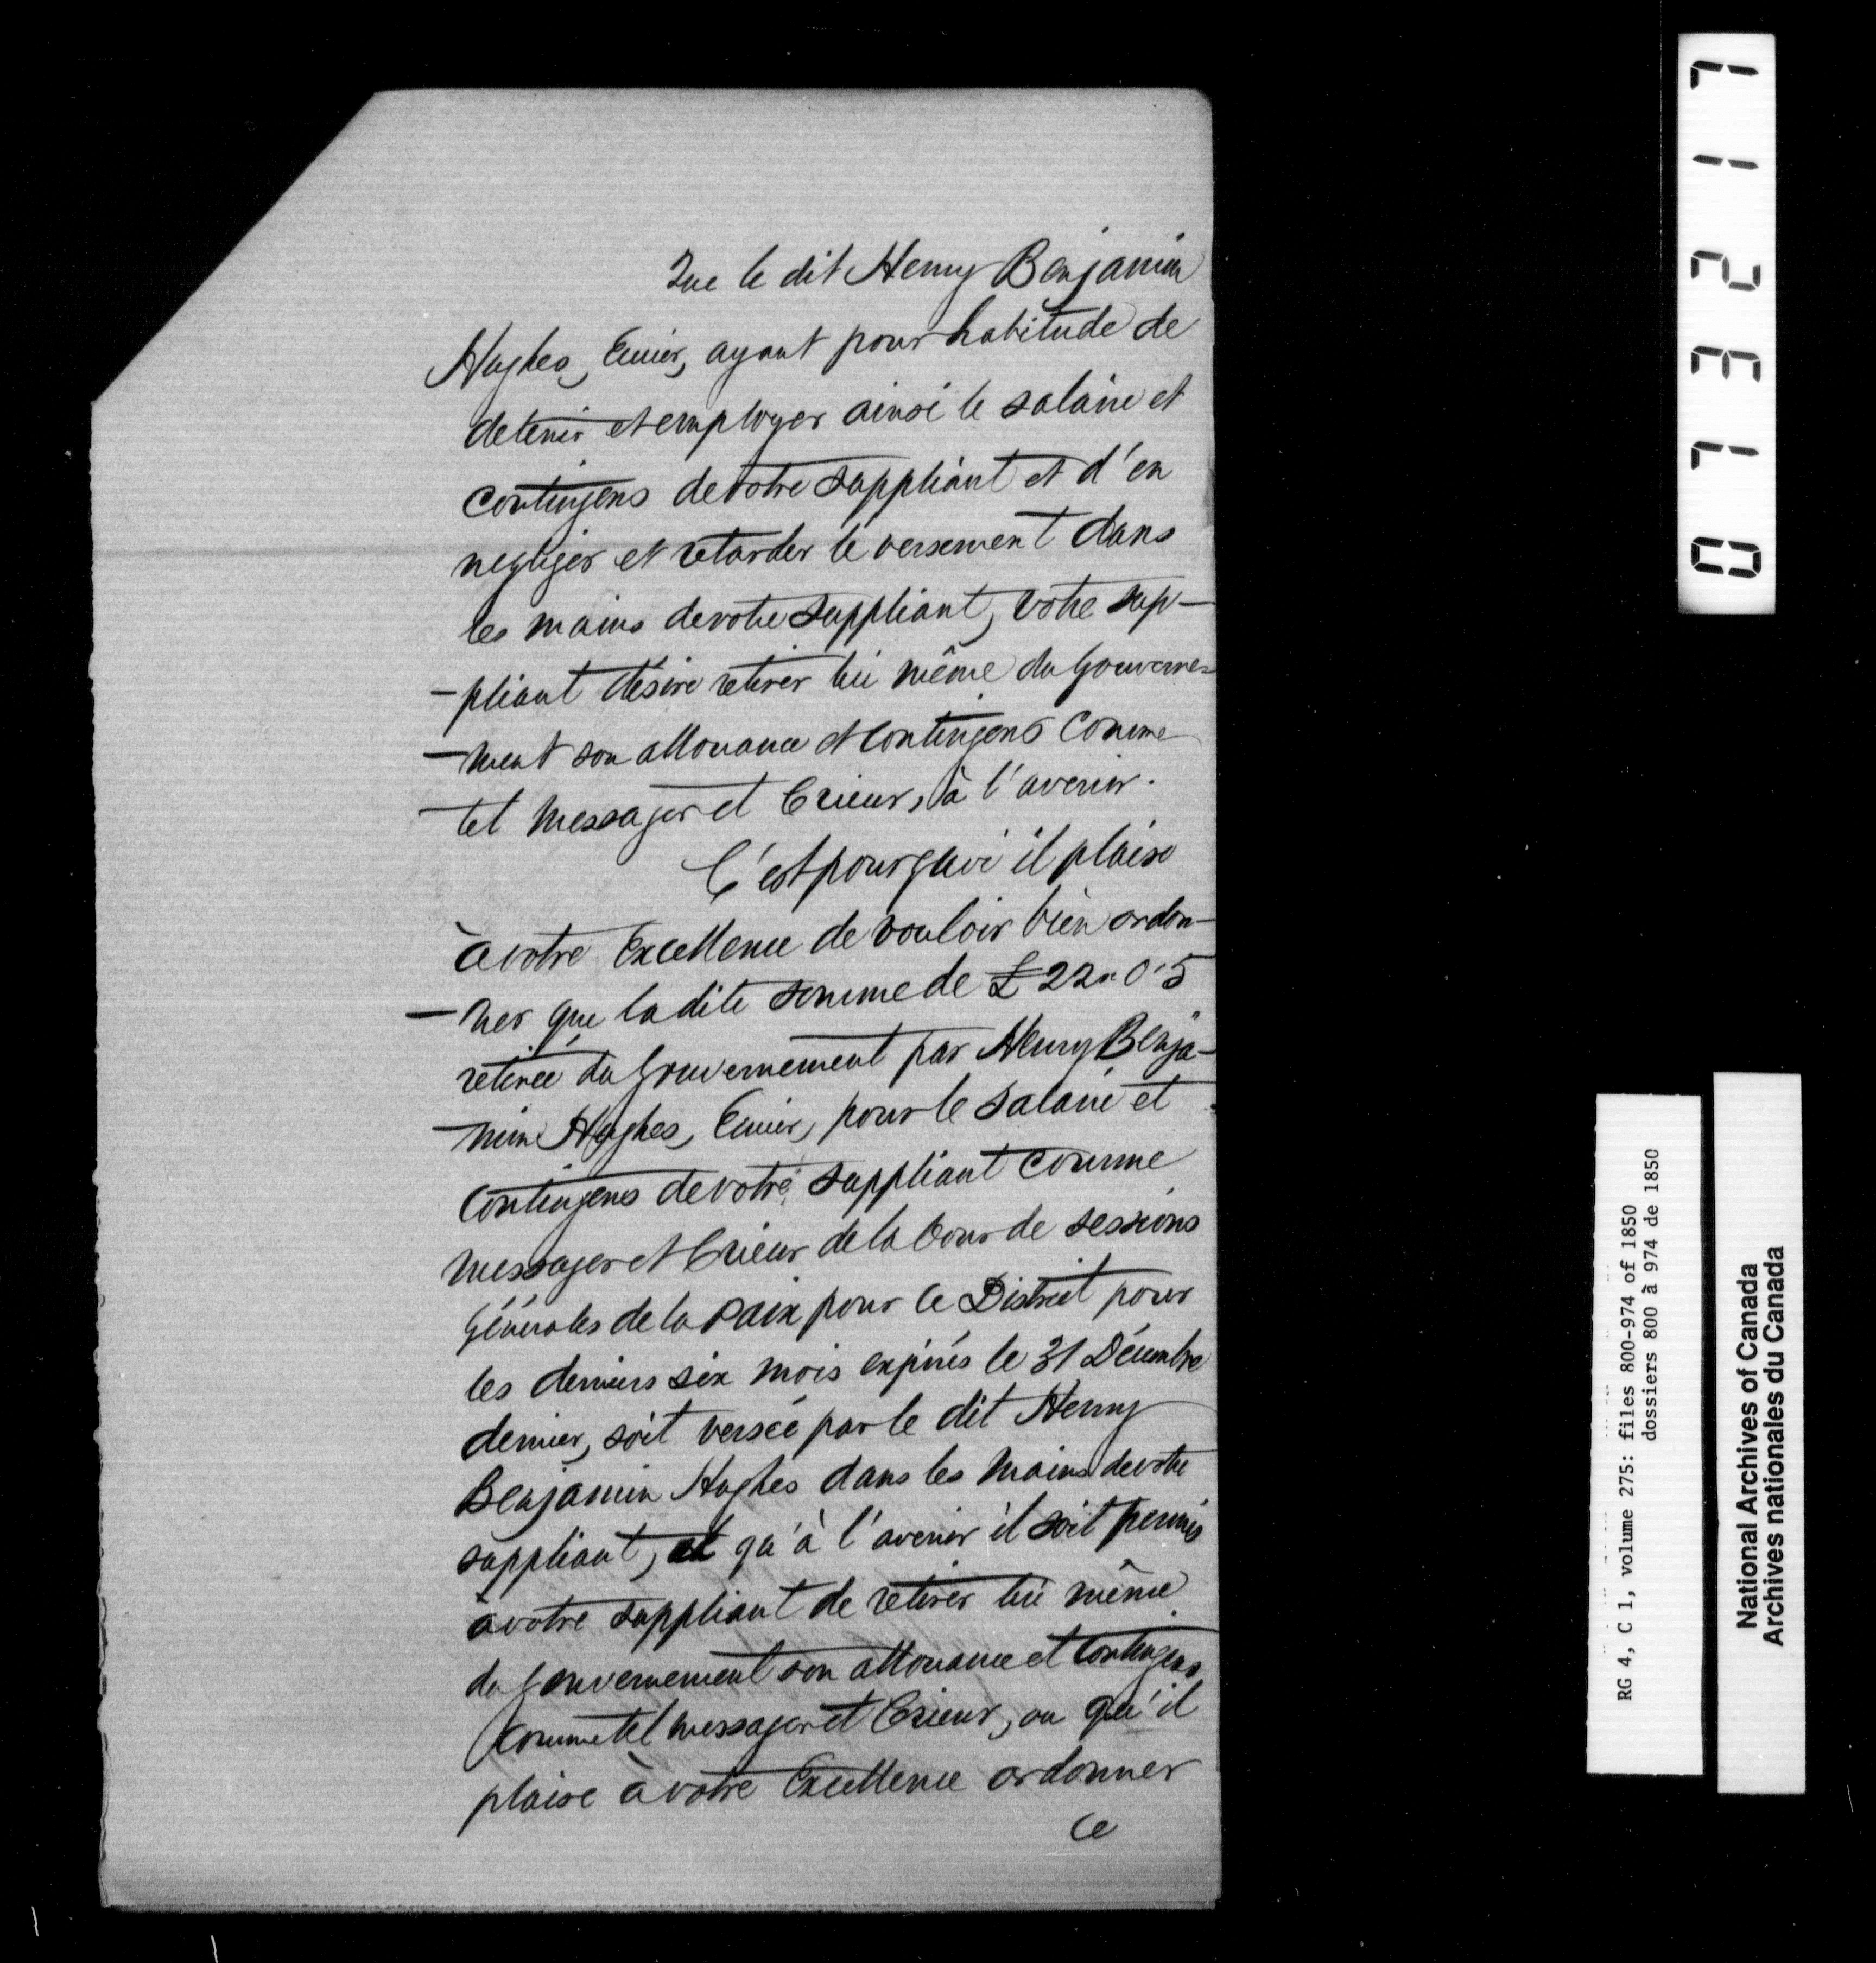 Que le dit Henry Benjamin
Hughes, Ecuier, ayant pour habitude de
detenir et employer ainsi le salaire et
contingens de votre suppliant et d'en
negliger et retarder le versement dans
les mains de votre suppliant, votre sup-
-pliant désire retirer lui même du Gouverne=
-ment son allouance et contingens comme
tel messager et Crieur, à l'avenir.
C'est pourquoi il plaise
à votre Excellence de vouloir bien ordon-
-ner que la dite somme de £22"0"5
retirée du Gouvernement par Henry Benja-
-min Hughes, Ecuier, pour le salaire et
contingens de votre suppliant comme
messager et Crieur de la Cour de sessions
Générales de la Paix pour ce District pour
les derniers six mois expirés le 31 Décembre
dernier, soit versée par le dit Henry
Benjamin Hughes dans les mains de votre
suppliant, et qu'à l'avenir il soit permis
à votre suppliant de retirer lui même
du Gouvernement son allouance et contingens
comme tel messager et Crieur, ou qu'il
plaise à votre Excellence ordonner
ce
073217
RG 4, C 1, volume 275: files 800-974 of 1850
dossiers 800 à 974 de 1850
National Archives of Canada
Archives nationales du Canada